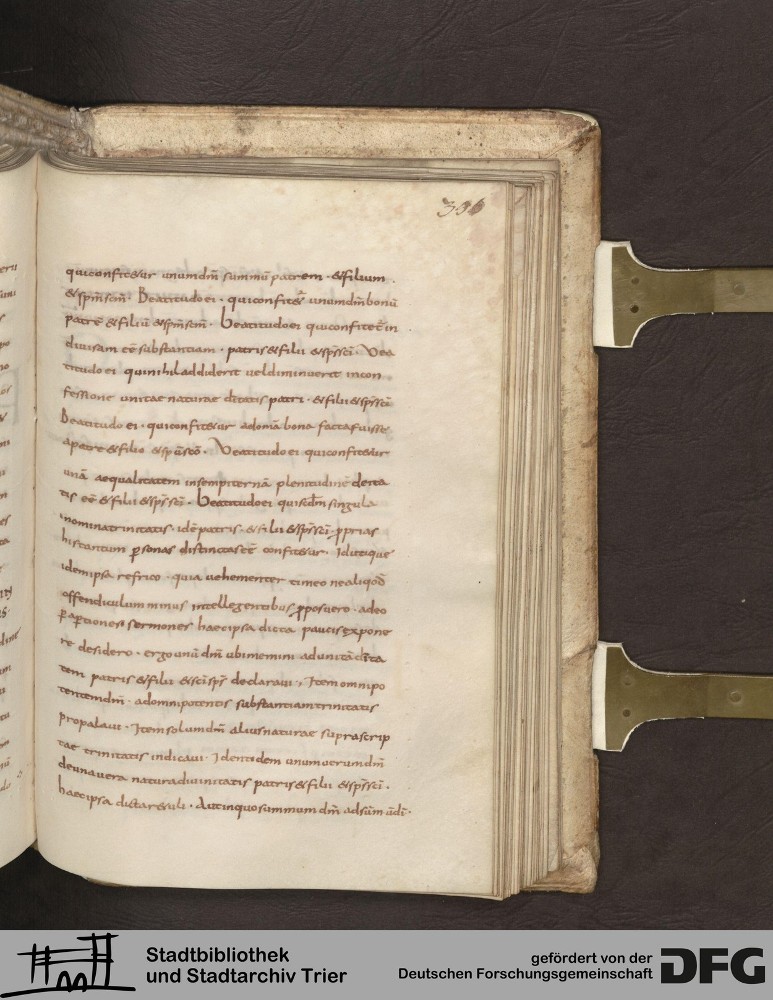 336
qui confitetur unum dm̄ summū patrem · & filium ·
& spm̄ scm̄ · Beatitudo ei · qui confitet̄ unum dm̄ bonū
patrē & filiū & spm̄ scm̄ · Beatitudo ei qui confitet̄ in
diuisam eē substantiam · patris & filii & sps̄ sc̄i · Bea
titudo ei qui nihil addiderit uel diminuerit in con
fessione unitae naturae ditatis patri · & filii & sps̄ sc̄i
Beatitudo ei · qui confitetur ad omīa bona facta fuisse
a patre & filio & spū sc̄ō · Beatitudo ei qui confitetur
unā aequalitatem in sempiternā plenitudinē deita
tis eē & filii & sps̄ sc̄i · Beatitudo ei qui
nomina trinitatis · idē patris · & filii & sps̄ sc̄i ꝓprias
ꝑsonas distinctas eē confitetur · Id utique
idem ipsa refrico · quia uehementer timeo ne aliqod̄
offendiculum minus intellegentibus ꝓposuero · adeo
sermones haec ipsa dicta paucis expone
re desidero · ergo unū dm̄ ubi memini ad unitā
tem patris & filii & sc̄i sps̄ declaraui · Item omnipo
tentem dm̄ · ad omnipotentis substantiam trinitatis
propalaui · Item solum dm̄ alius naturae suprascrip
tae trinitatis indicaui · Identidem unum uerum dm̄
de una uera natura diuinitatis patris & filii & sps̄ sc̄i ·
haec ipsa dictare uli · At in quo summum dm̄
Stadtbibliothek
und Stadtarchiv Trier
gefördert von der
Deutschen Forschungsgemeinschaft
DFG